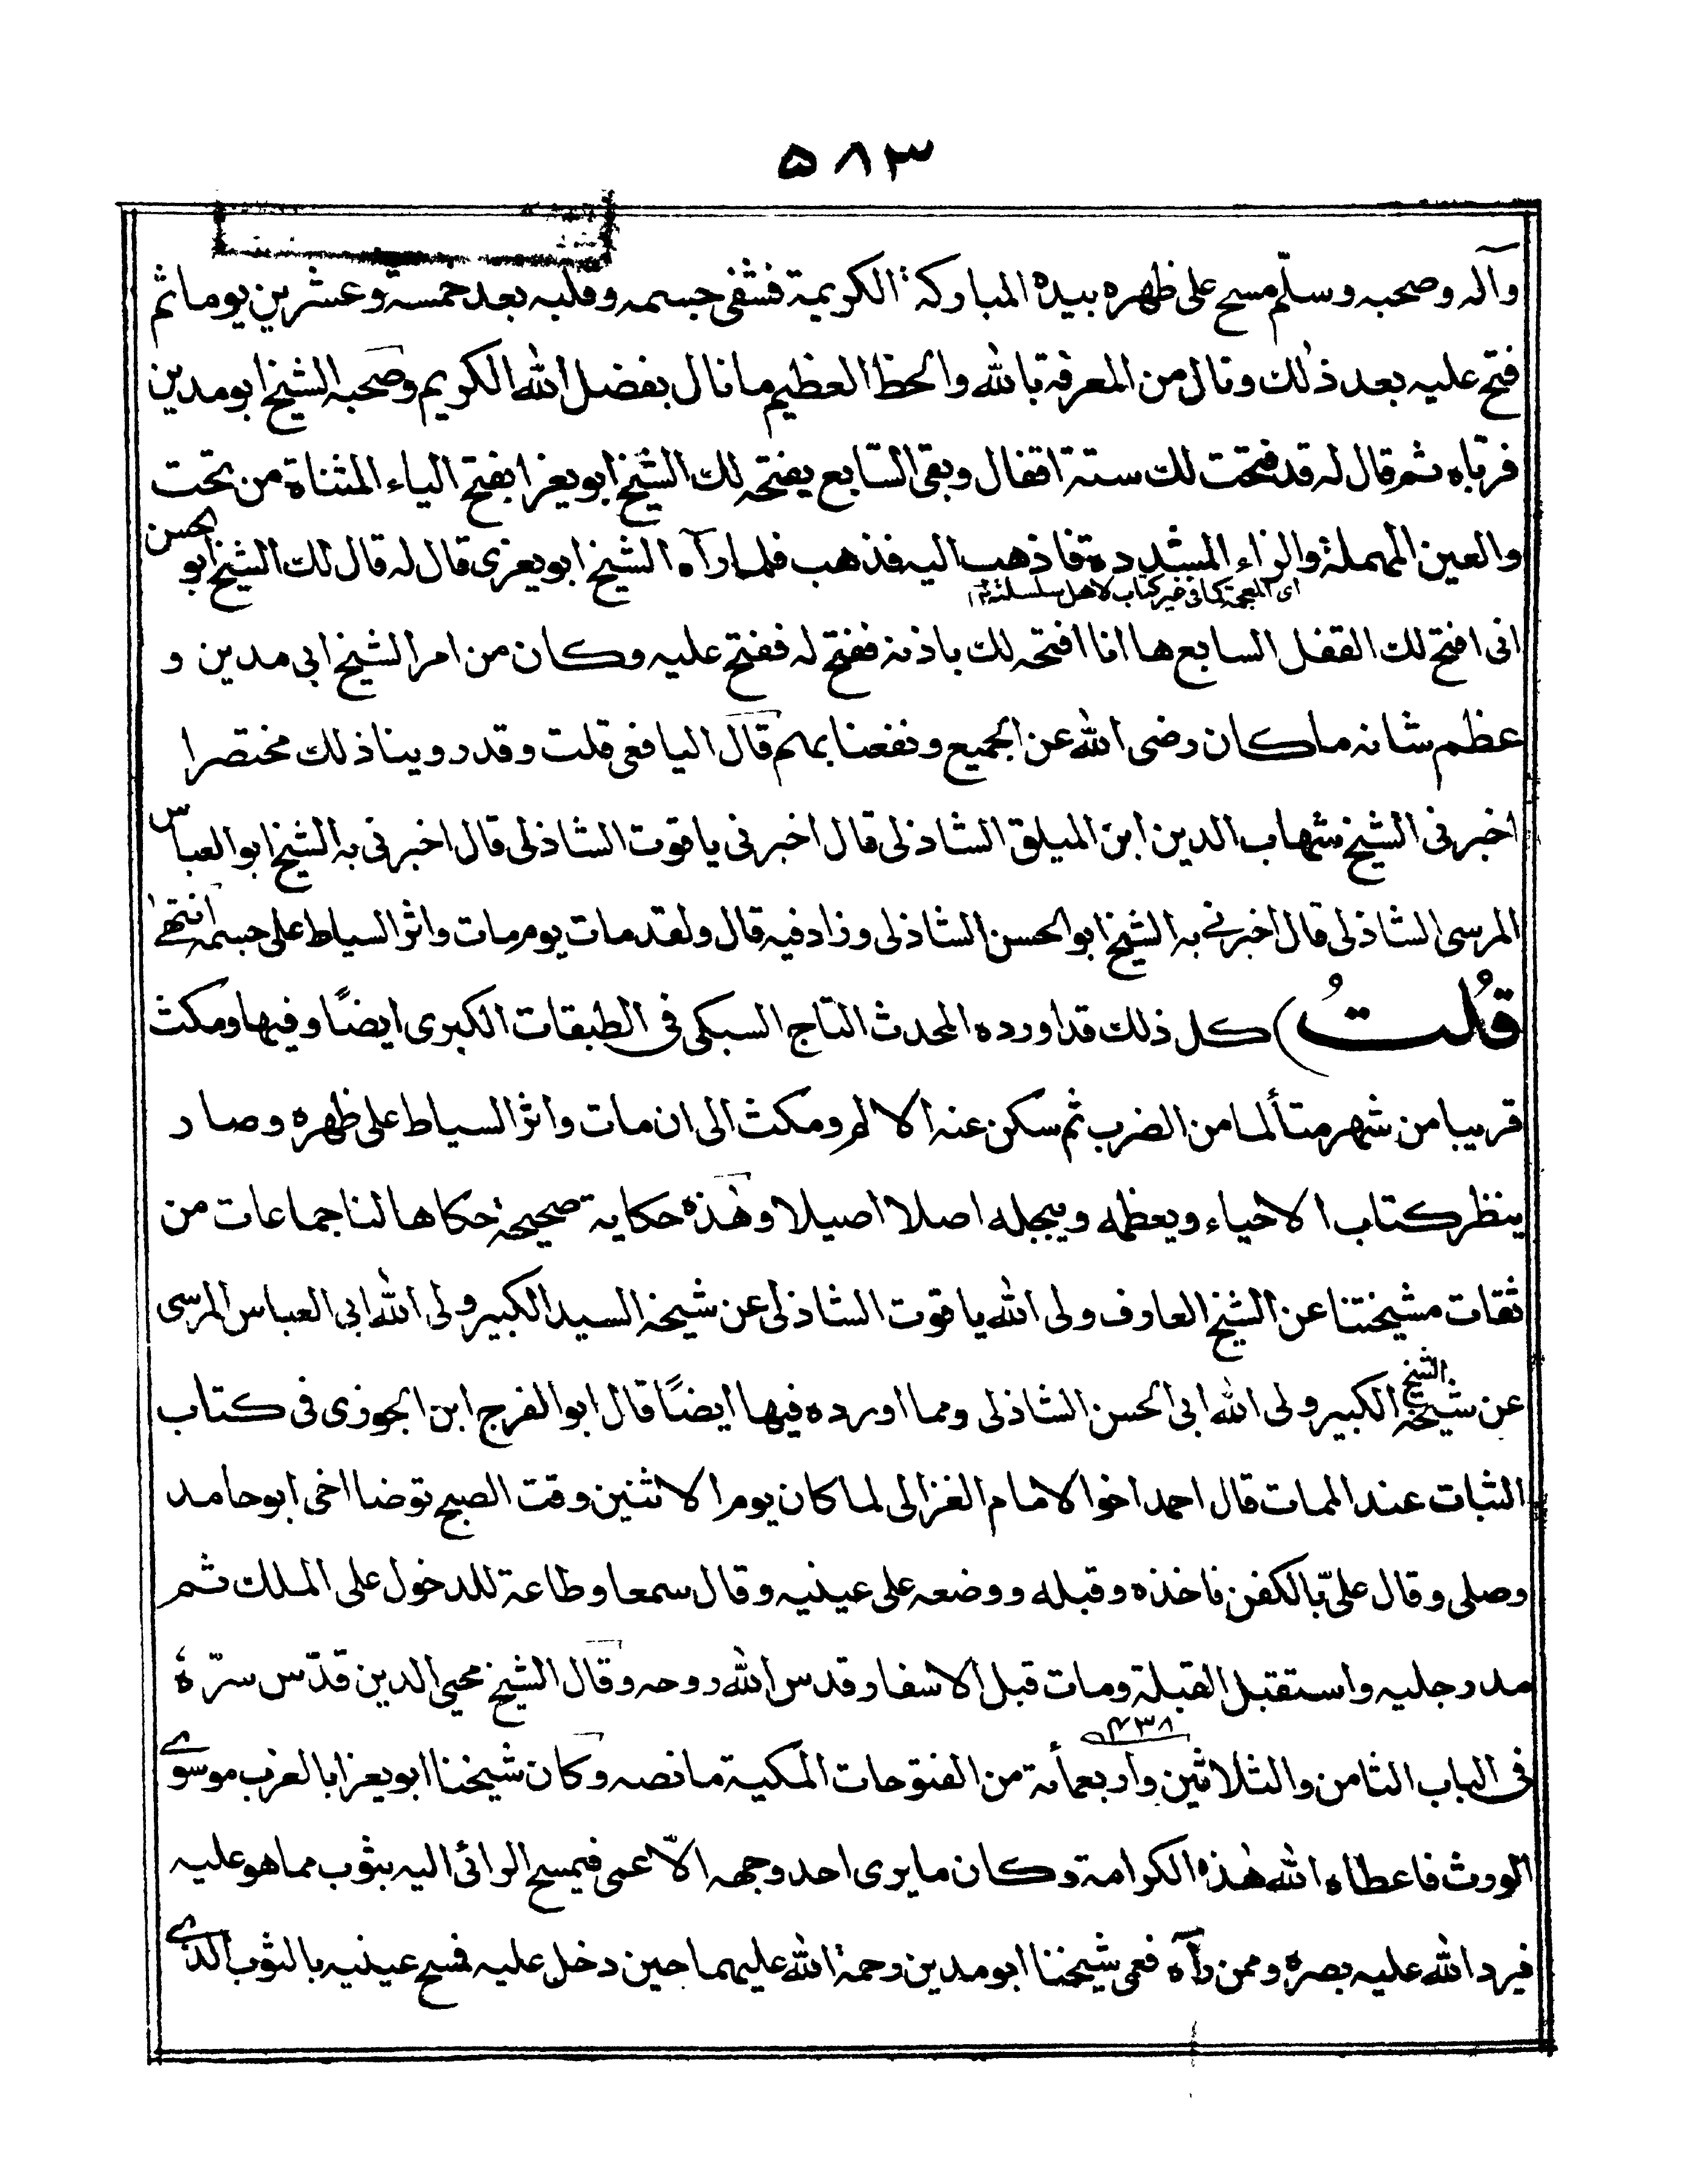 ٥٨٣
وآله وصحبه وسلّم مسح على ظهره بيده المباركة الكريمة فشفى جسمه وقلبه بعد خمسة وعشرين يوما ثم
فتح عليه بعد ذلك ونال من المعرفة بالله والحظ العظيم ما نال بفضل الله الكريم وصحبه الشيخ ابو مدين
فرباه ثم قال له قد فتحت لك ستة اقفال وبقى السّابع يفتحه لك الشيخ ابو يعزا بفتح الياء المثناة من تحت
والعين المهملة والزاء المشددة فاذهب اليه فذهب فلما رآه الشيخ ابو يعزى قال له قال لك الشيخ ابو الحسن
اى المعجمة كما فى خير كتاب لاهل سلسلته
انى افتح لك القفل السابع ها انا افتحه لك باذنه ففتح له ففتح عليه وكان من امر الشيخ ابى مدين و
عظم شانه ما كان رضى الله عن الجميع ونفعنا بهم قال اليافعى قلت وقد روينا ذلك مختصرا
اخبرنى الشيخ شهاب الدين ابن الميلق الشاذلى قال اخبرنى ياقوت الشاذلى قال اخبرنى به الشيخ ابو العباس
المرسى الشاذلى قال اخبرنے به الشيخ ابو الحسن الشاذلى وزاد فيه قال ولقد مات يوم مات واثر السياط على جسمه انتهےٰ
قُلتُ) كل ذلك قد اورده المحدث التاج السبكى فى الطبقات الكبرى ايضًا وفيها ومكث
قريبا من شهر متألما من الضرب ثم سكن عنه الالم ومكث الى ان مات واثر السياط على ظهره وصار
ينظر كتاب الاحياء ويعظمه ويبجله اصلا اصيلا وهذه حكاية صحيحة حكاها لنا جماعات من
ثقات مشيختنا عن الشيخ العارف ولى الله ياقوت الشاذلى عن شيخه السيد الكبير ولى الله ابى العباس المرسى
عن شيخه الشيخ الكبير ولى الله ابى الحسن الشاذلى ومما اورده فيها ايضًا قال ابو الفرج ابن الجوزى فى كتاب
الثبات عند الممات قال احمد اخو الامام الغزالى لما كان يوم الاثنين وقت الصبح توضا اخى ابو حامد
وصلى وقال علىّ بالكفن فاخذه وقبله ووضعه على عينيه وقال سمعا وطاعة للدخول على الملك ثم
مد رجليه واستقبل القبلة ومات قبل الاسفار قدس الله روحه وقال الشيخ محيى الدين قدّس سرّهٗ
٤٣٨
فى الباب الثامن والثلاثين واربعمأىة من الفتوحات المكية ما نصه وكان شيخنا ابو يعزا بالغرب موسوے
الورث فاعطاه الله هذه الكرامة وكان ما يرى احد وجهه الّا عمى فيمسح الرائى اليه بثوب مما هو عليه
فيرد الله عليه بصره وممن رآه فعمى شيخنا ابو مدين رحمة الله عليهما حين دخل عليه فمسح عينيه بالثوب الذے